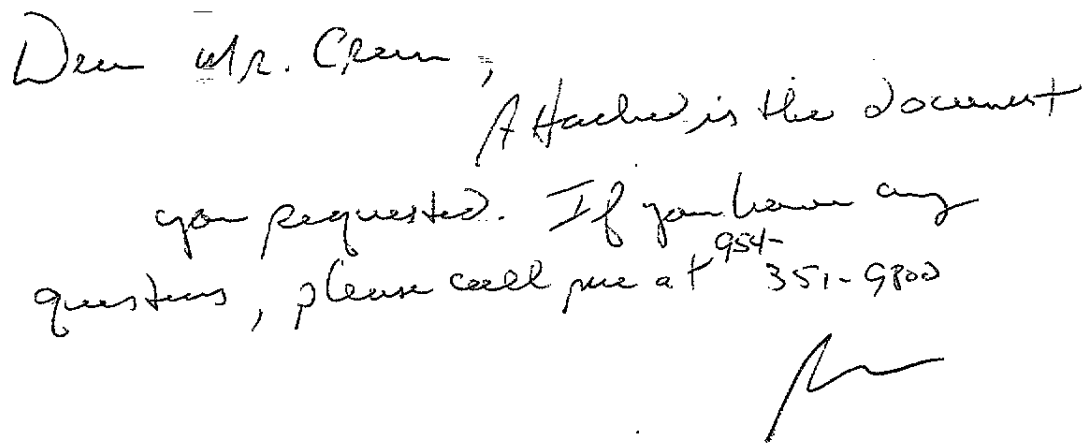 Dear Mr. Crean,
Attached is the document
you requested. If you have any
questions, please call me at 954-
351-9800